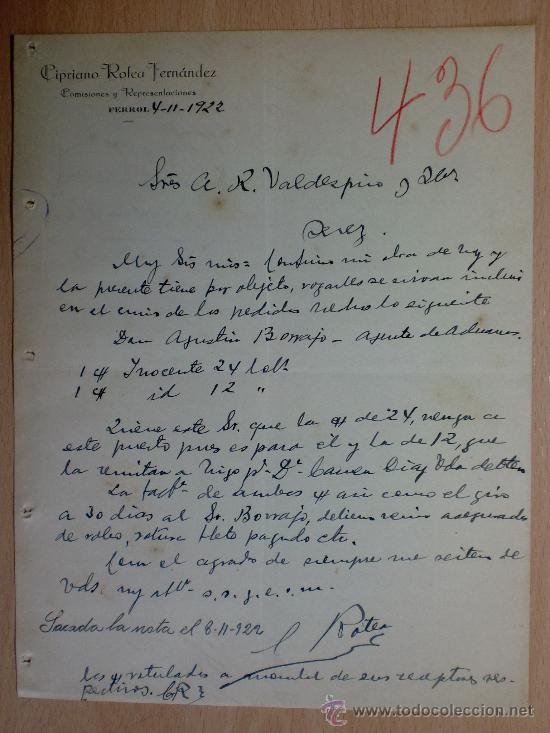 Cipriano Rofea Fernández
Comisiones y Representaciones
FERROL 4-11-1922
436
Sres A. R. Valdespino y
Jerez.
Muy Srs mios = Confirmo mi atra de hoy y
la presente tiene por objeto, rogarles se sirvan incluir
en el envio de los pedidos hechos lo siguiente
Don Agustin Borrajo - Agente de Aduanas.
1 c/ Inocente 24 bot
1 c/ id 12 "
Quiere este Sr. que la c/ de 24, venga a
este puerto pues es para él y la de 12, que
la remitan a Vigo pª Dª Diaz Vda de
La factª de ambas c/ asi como el giro
a 30 dias al Sr. Borrajo, deben venir
de robo, rotura flete pagado etc.
Con el agrado de siempre me reitero de
Vds. my attº s. s. q. e. s. m.
Sacada la nota el 6-11-922
C Rofea
las c/ rotuladas a nombre de sus receptores res-
pectivos. CR
todocoleccion.net